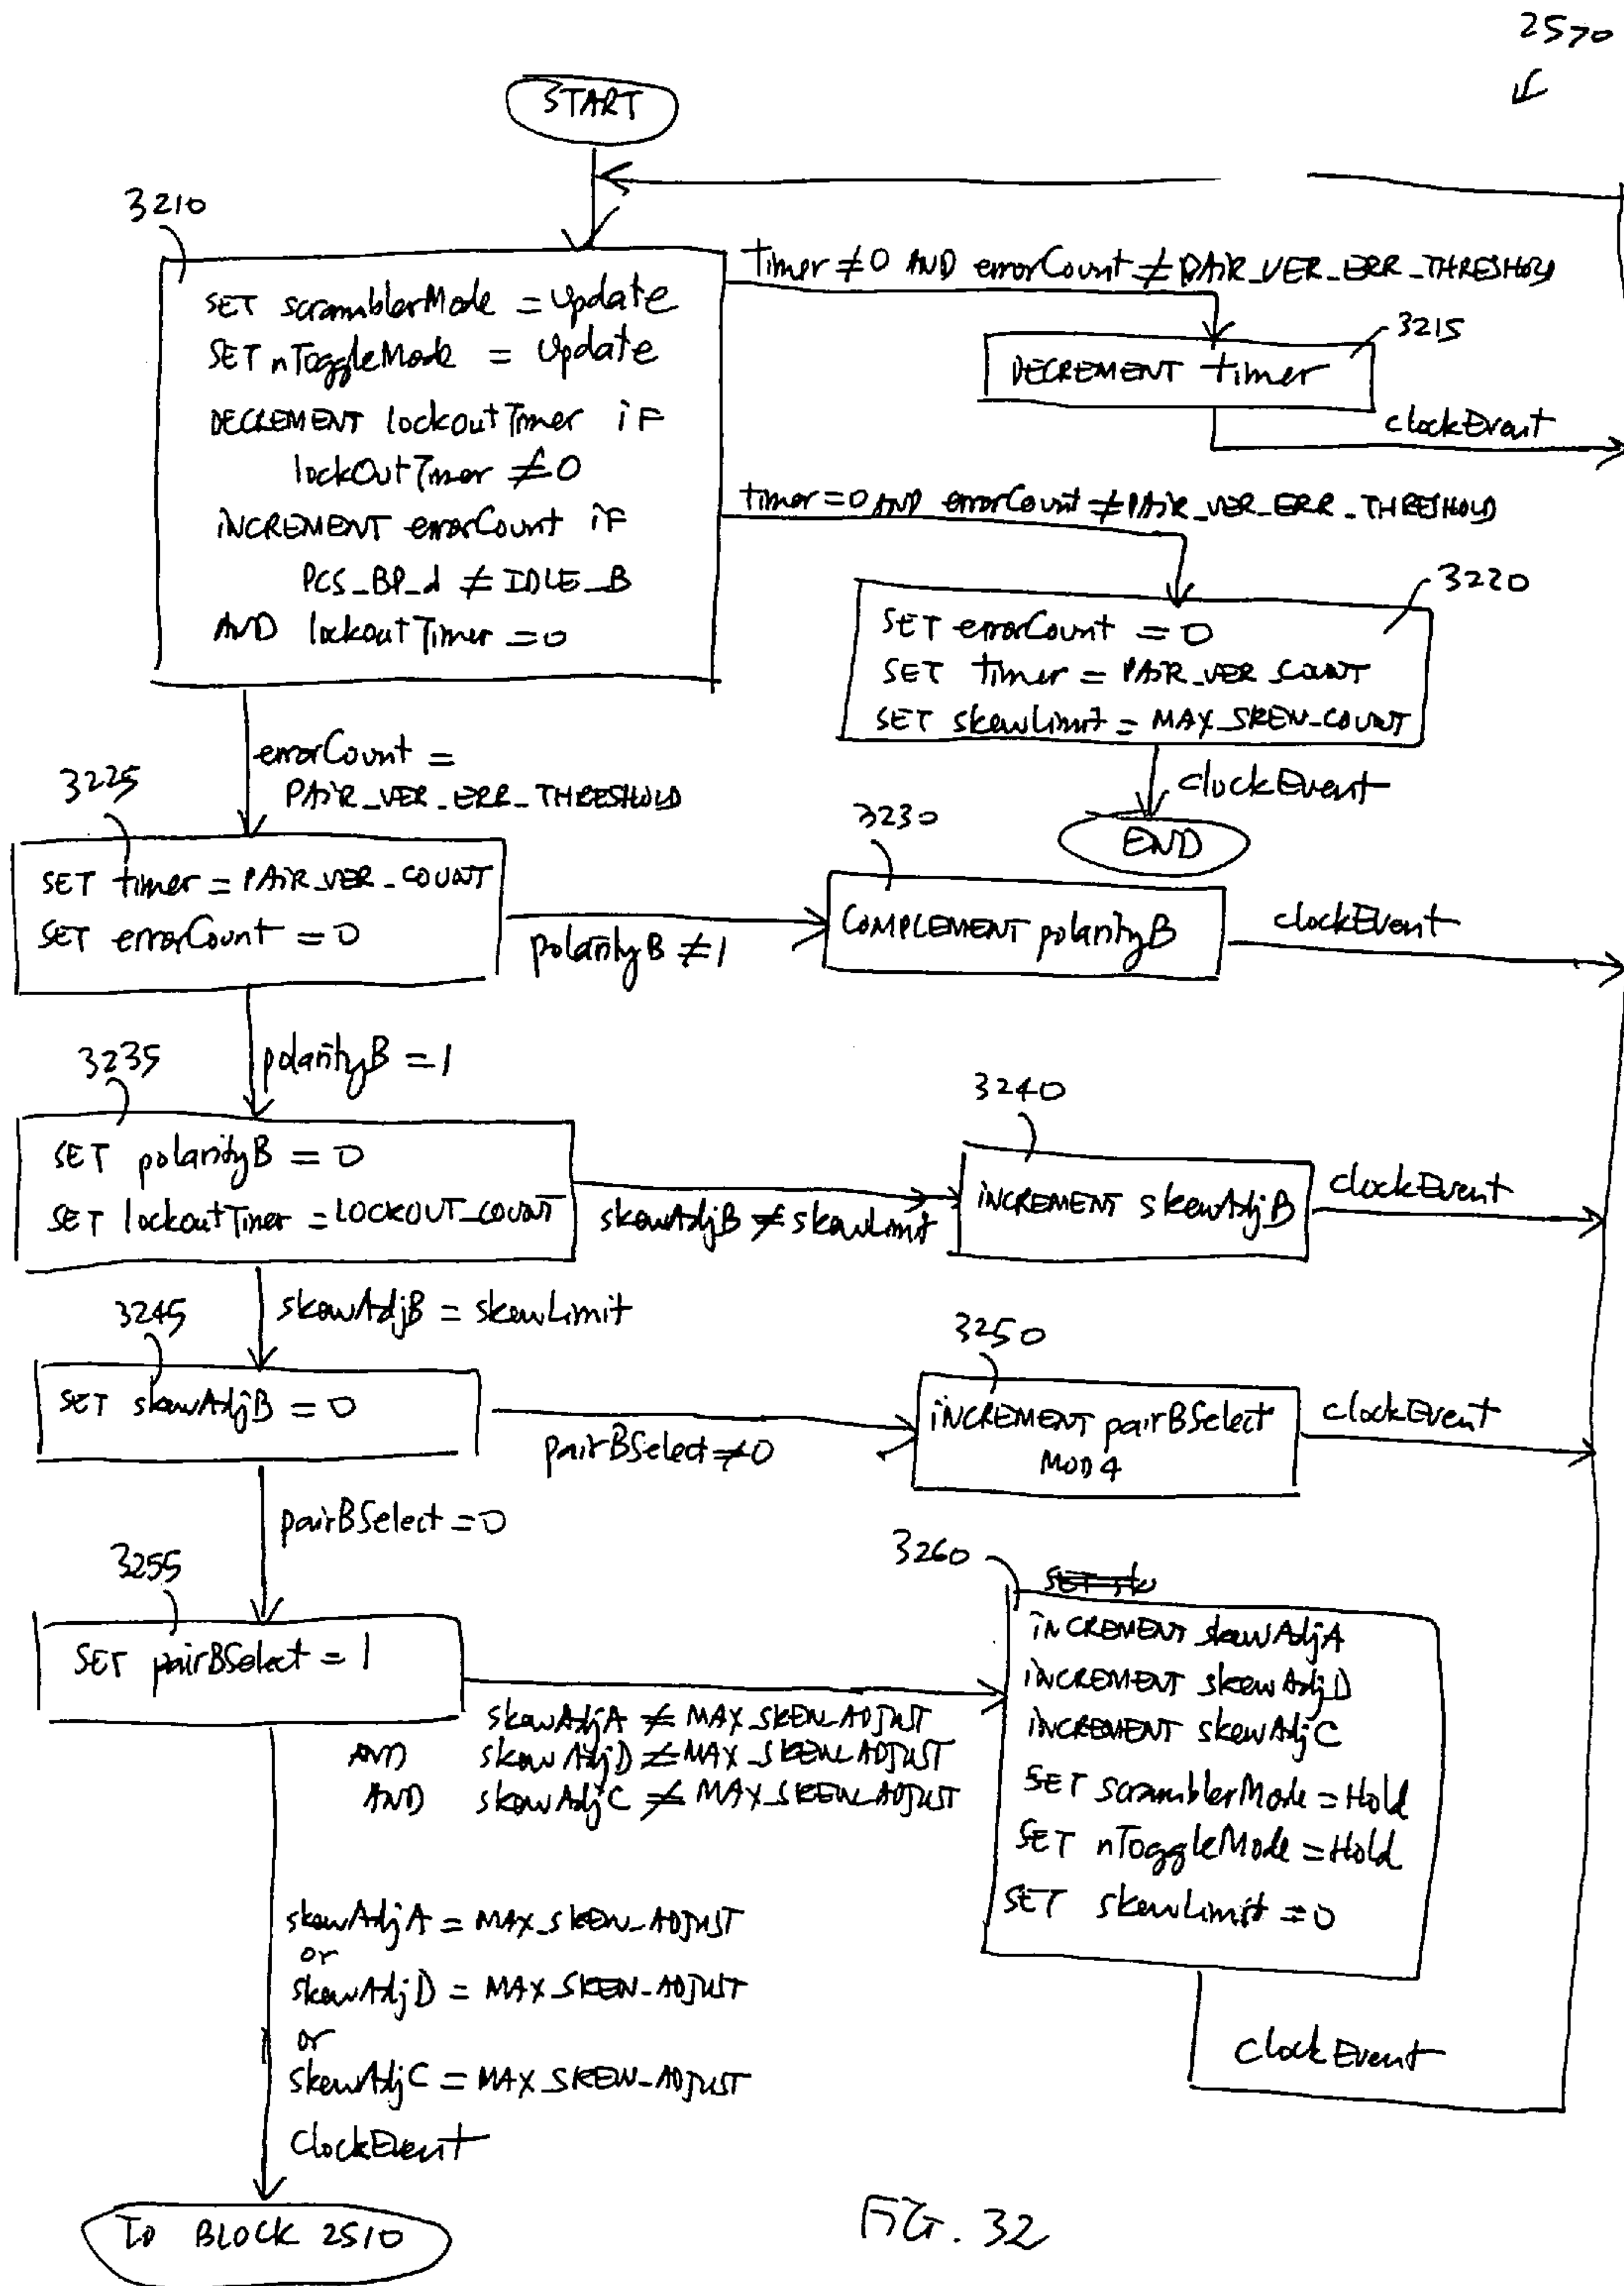 2570
START
3210
SET scramblerMode = Update
SET nToggleMode = Update
DECREMENT lockoutTimer iF
lockOutTimer ≠ 0
iNCREMENT errorCount iF
PCS_BP_d ≠ IDLE_B
AND lockoutTimer = 0
timer ≠ 0 AND errorCount ≠ PAiR_VER_ERR_THRESHOLD
3215
DECREMENT timer
clockEvent
timer = 0 AND errorCount ≠ PAiR_VER_ERR_THRESHOLD
3220
SET errorCount = 0
SET timer = PAiR_VER_COUNT
SET skewLimit = MAX_SKEW_COUNT
clockEvent
END
errorCount =
PAiR_VER_ERR_THRESHOLD
3225
SET timer = PAiR_VER_COUNT
SET errorCount = 0
polarityB ≠ 1
3230
COMPLEMENT polarityB
clockEvent
polarityB = 1
3235
SET polarityB = 0
SET lockoutTimer = LOCKOUT_COUNT
skewAdjB ≠ skewLimit
3240
iNCREMENT skewAdjB
clockEvent
skewAdjB = skewLimit
3245
SET skewAdjB = 0
pairBSelect ≠ 0
3250
iNCREMENT pairBSelect
MOD 4
clockEvent
pairBSelect = 0
3255
SET pairBSelect = 1
skewAdjA ≠ MAX_SKEW_ADJUST
AND skewAdjD ≠ MAX_SKEW_ADJUST
AND skewAdjC ≠ MAX_SKEW_ADJUST
3260
SET sk
iNCREMENT skewAdjA
iNCREMENT skewAdjD
iNCREMENT skewAdjC
SET scramblerMode = Hold
SET nToggleMode = Hold
SET skewLimit = 0
clockEvent
skewAdjA = MAX_SKEW_ADJUST
or
skewAdjD = MAX_SKEW_ADJUST
or
skewAdjC = MAX_SKEW_ADJUST
ClockEvent
TO BLOCK 2510
FIG. 32